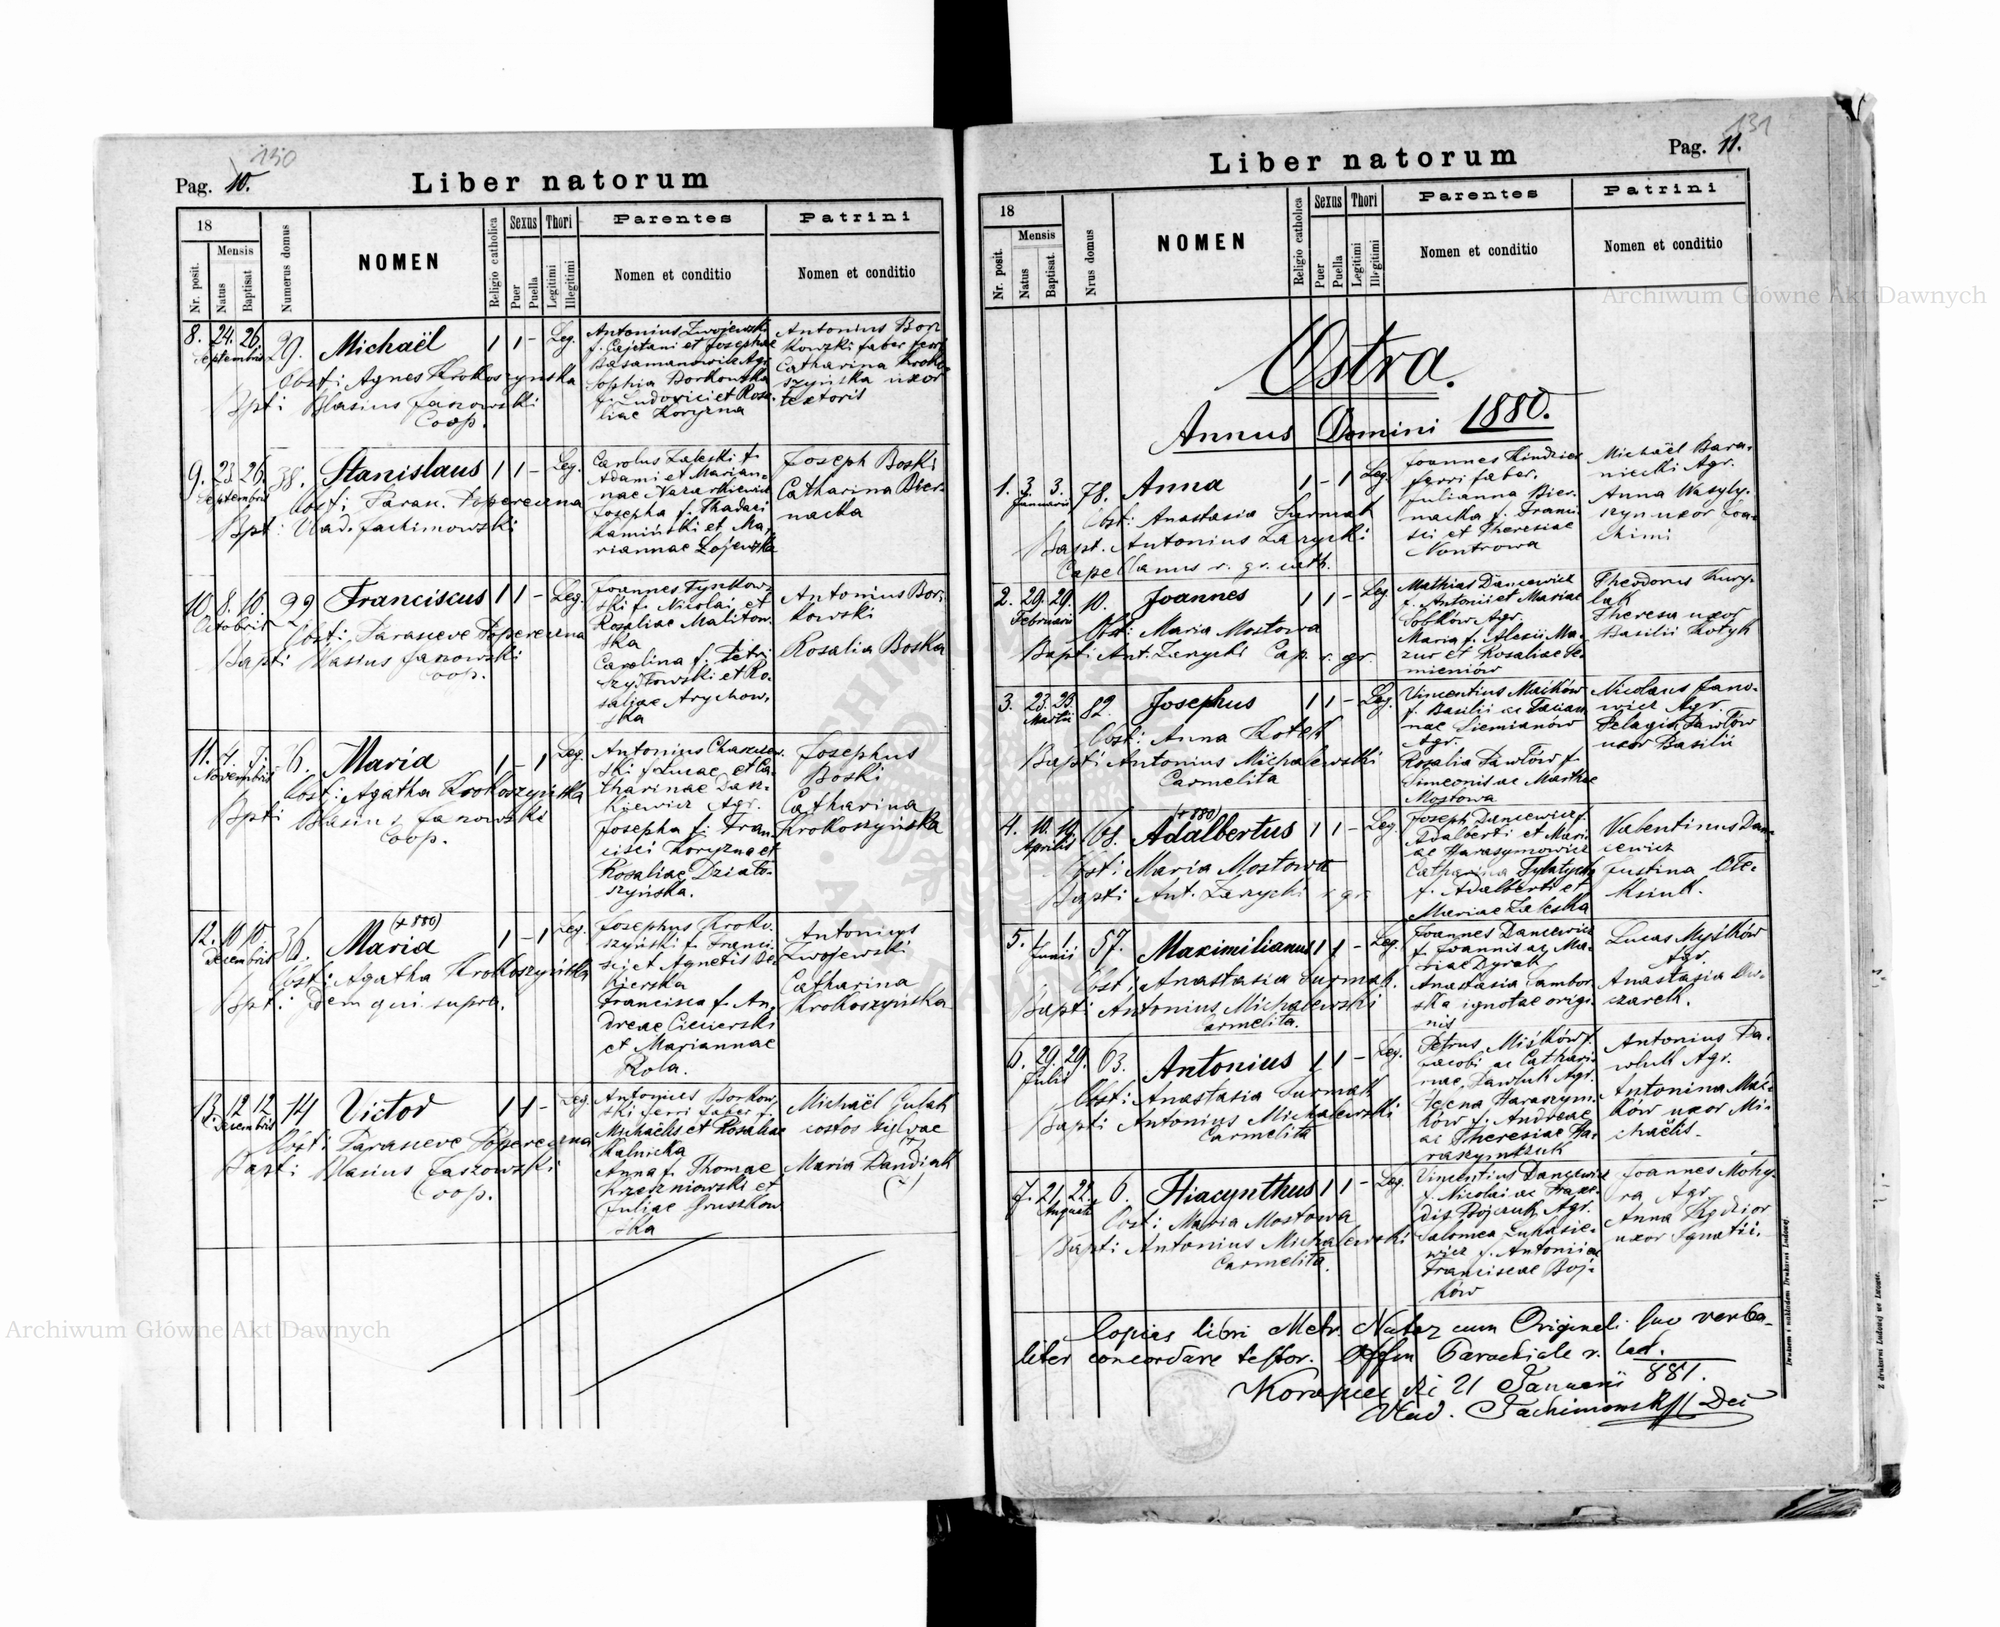 130
Pag. 10.
Liber natorum
18
Mensis
Nr. posit.
Natus
Baptisat
Numerus domus
NOMEN
Religio catholica
Sexus
Puer
Puella
Thori
Legitimi
Illegitimi
Parentes
Nomen et conditio
Patrini
Nomen et conditio
8. 24. 26. Septembris 29. Michaël 1 1 - Leg.
Obst: Agnes Krokoszyńska
Bpti Blasius Janowski
Coop.
Antonius Zwojewski
f. Cajetani et Josephae
Agr.
Sophia Borkowska
f. Ludovici et Rosa-
liae Koryzna
Antonius Bor
kowski faber ferri
Catharina Kroko-
szyńska uxor
textoris
9. 23. 26. Septembris 38. Stanislaus 1 1 - Leg.
Obst: Parau. Popereczna
Bpt: Vlad. Jachimowski
Carolus Zaleski f.
Adami et Marian-
nae Nazarkiewicz
Josepha f. Thadaei
Kamiński et Ma-
riannae Łojewska
Joseph Boski
Catharina Bier-
nacka
10. 8. 10. Octobris 29 Franciscus 1 1 - Leg.
Obst: Parasceve Popereczna
Bapti Blasius Janowski
Coop.
Joannes Tynkow-
ski f. Nicolai et
Rosaliae Malitow-
ska
Carolina f. Petri
Szydłowski et Ro-
saliae Arychow-
ska
Antonius Bor-
kowski
Rosalia Boska
11. 4. 7. Novembris 6. Maria 1 - 1 Leg.
Obst: Agatha Krokoszyńska
Bpti Blasius Janowski
Coop.
Antonius
ski f. Lucae et Ca-
tharinae
Agr.
Josepha f. Fran-
cisci Koryzna et
Rosaliae Działo-
szyńska.
Josephus
Boski
Catharina
Krokoszyńska
12. 10 10. Decembris 36. (+ 880)
Maria 1 - 1 Leg.
Obst: Agatha Krokoszyńska
Bpt: Idem qui supra.
Josephus Kroko-
szyński f. Franci-
sci et Agnetis Se-
kierska
Francisca f. An-
dreae Cicierski
et Mariannae
Rola.
Antonius
Zwojewski
Catharina
Krokoszyńska
13. 12 12 Decembris 14 Victor 1 1 - Leg.
Obst: Parasceve Popereczna
Bapti Blasius Janowski
Coop.
Antonius Borkow-
ski ferri faber f.
Michaëlis et Rosaliae
Kalnicka
Anna f. Thomae
Krzeczniowski et
Juliae Gruszkow
ska
Michaël Gulak
costos sylvae
(+)
Maria Dandiak
(+)
131
Pag. 11.
Liber natorum
18
Mensis
Nr. posit.
Natus
Baptisat.
Nrus domus
NOMEN
Religio catholica
Sexus
Puer
Puella
Thori
Legitimi
Illegitimi
Parentes
Nomen et conditio
Patrini
Nomen et conditio
Ostra.
Annus Domini 1880.
1. 3. 3. Januarii 78. Anna 1 - 1 Leg.
Obst: Anastasia Surmak
Bapt. Antonius Zarycki
Capellanus r. gr. cath.
Joannes
ferri faber.
Julianna Bier-
nacka f. Franci-
sci et Theresiae
Nontrowa
Michaël Bara-
niecki Agr.
Anna Wasyly-
szyn uxor Joa-
chimi
2. 29. 29. Februarii 10. Joannes 1 1 - Leg.
Obst: Maria Mostowa
Bapti Ant. Zarycki Cap. r. gr.
Mathias Dancewicz
f. Antonii et Mariae
Sobków Agr.
Maria f. Alexii Ma-
zur et Rosaliae Se-
mieniów
Theodorus Kury-
luk
Theresa uxor
Basilii Kotyk
3. 23. 23. Martii 82. Josephus 1 1 - Leg.
Obst: Anna Kotek
Bapti Antonius Michalewski
Carmelita
Vincentius Miśków
f. Basilii ac Tacian-
nae Siemianów
Agr.
Rosalia Pawlów f.
Simeonis ac Marthae
Mostowa
Nicolaus Jano-
wicz Agr.
Pelagia Pawlów
uxor Basilii
4. 10. 10. Aprilis 61. (+ 880)
Adalbertus 1 1 - Leg.
Obst: Maria Mostowa
Bapti Ant. Zarycki r. gr.
Joseph Dancewicz f.
Adalberti et Mari-
ae Harasymowicz
Catharina
f. Adalberti et
Mariae Zaleska
Valentinus Dan-
cewicz
Justina
5. 1. 1. Junii 57. Maximilianus 1 1 - Leg.
Obst: Anastasia Surmak.
Bapti Antonius Michalewski
Carmelita.
Joannes Dancewicz
f. Joannis ac Ma-
riae Dyrak
Anastasia Sambor-
ska ignotae origi-
nis
Lucas Myśków
Agr.
Anastasia Ow-
czarek.
6. 29. 29. Julii 63. Antonius 1 1 - Leg.
Obst: Anastasia Surmak
Bapti Antonius Michalewski
Carmelita
Petrus Miśków f.
Jacobi ac Cathari-
nae Pawluk Agr.
Helena Harasym-
ków f. Andreae
ac Theresiae Ha-
rasymczuk
Antonius Pa-
wluk Agr.
Antonina Miś-
ków uxor Mi-
chaëlis.
7. 21. 22. Augusti 6. Hiacynthus 1 1 - Leg.
Obst: Maria Mostowa
Bapti Antonius Michalewski
Carmelita.
Vincentius Dancewicz
f. Nicolai ac Praxe-
dis Bojczuk Agr.
Salomea Lukasie-
wicz f. Antonii ac
Franciscae Boj-
ków
Joannes Mohy-
ra Agr.
Anna Kędzior
uxor Ignatii.
Copies libri Metr. Nator cum Originali suo verba-
liter concordare testor. Offm Parochiale r. lat.
Koropiec die 21 Januarii 881.
Vlad. Jachimowski
Drukiem i nakładem Drukarni Ludowej.
Z drukarni Ludowej we Lwowie.
Archiwum Główne Akt Dawnych
Archiwum Główne Akt Dawnych